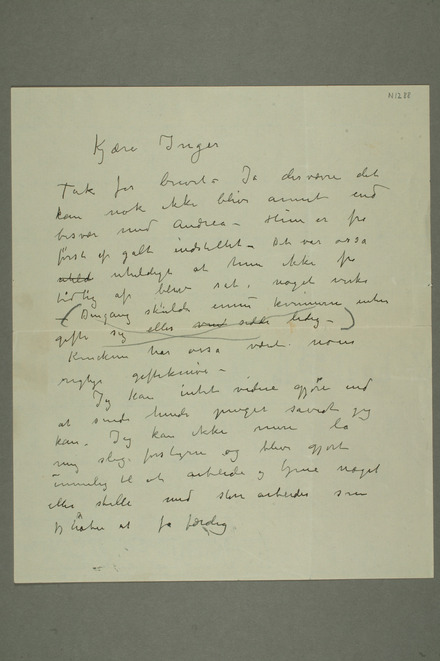 N1288
Kjære Inger
Tak for brevet – Ja desværre det
kan nok ikke blive annet end
besvær med Andrea – Hun er fra
først af galt indstillet – Det var ossa
uheldigt at hun ikke fra
tidlig af blev sat i noget virke
(Dengang skulde enver kvinne enten
gifte sig eller
har ossa vært
rigtige giftekniver –
Jeg kan intet videre gjøre end
at sende hende penger savidt jeg
kan. Jeg kan ikke mere la
mig slig forstyrre og blive gjort
umulig til at arbeide og tjene noget
eller stelle med store arbeider som
jeg håber at fa færdig